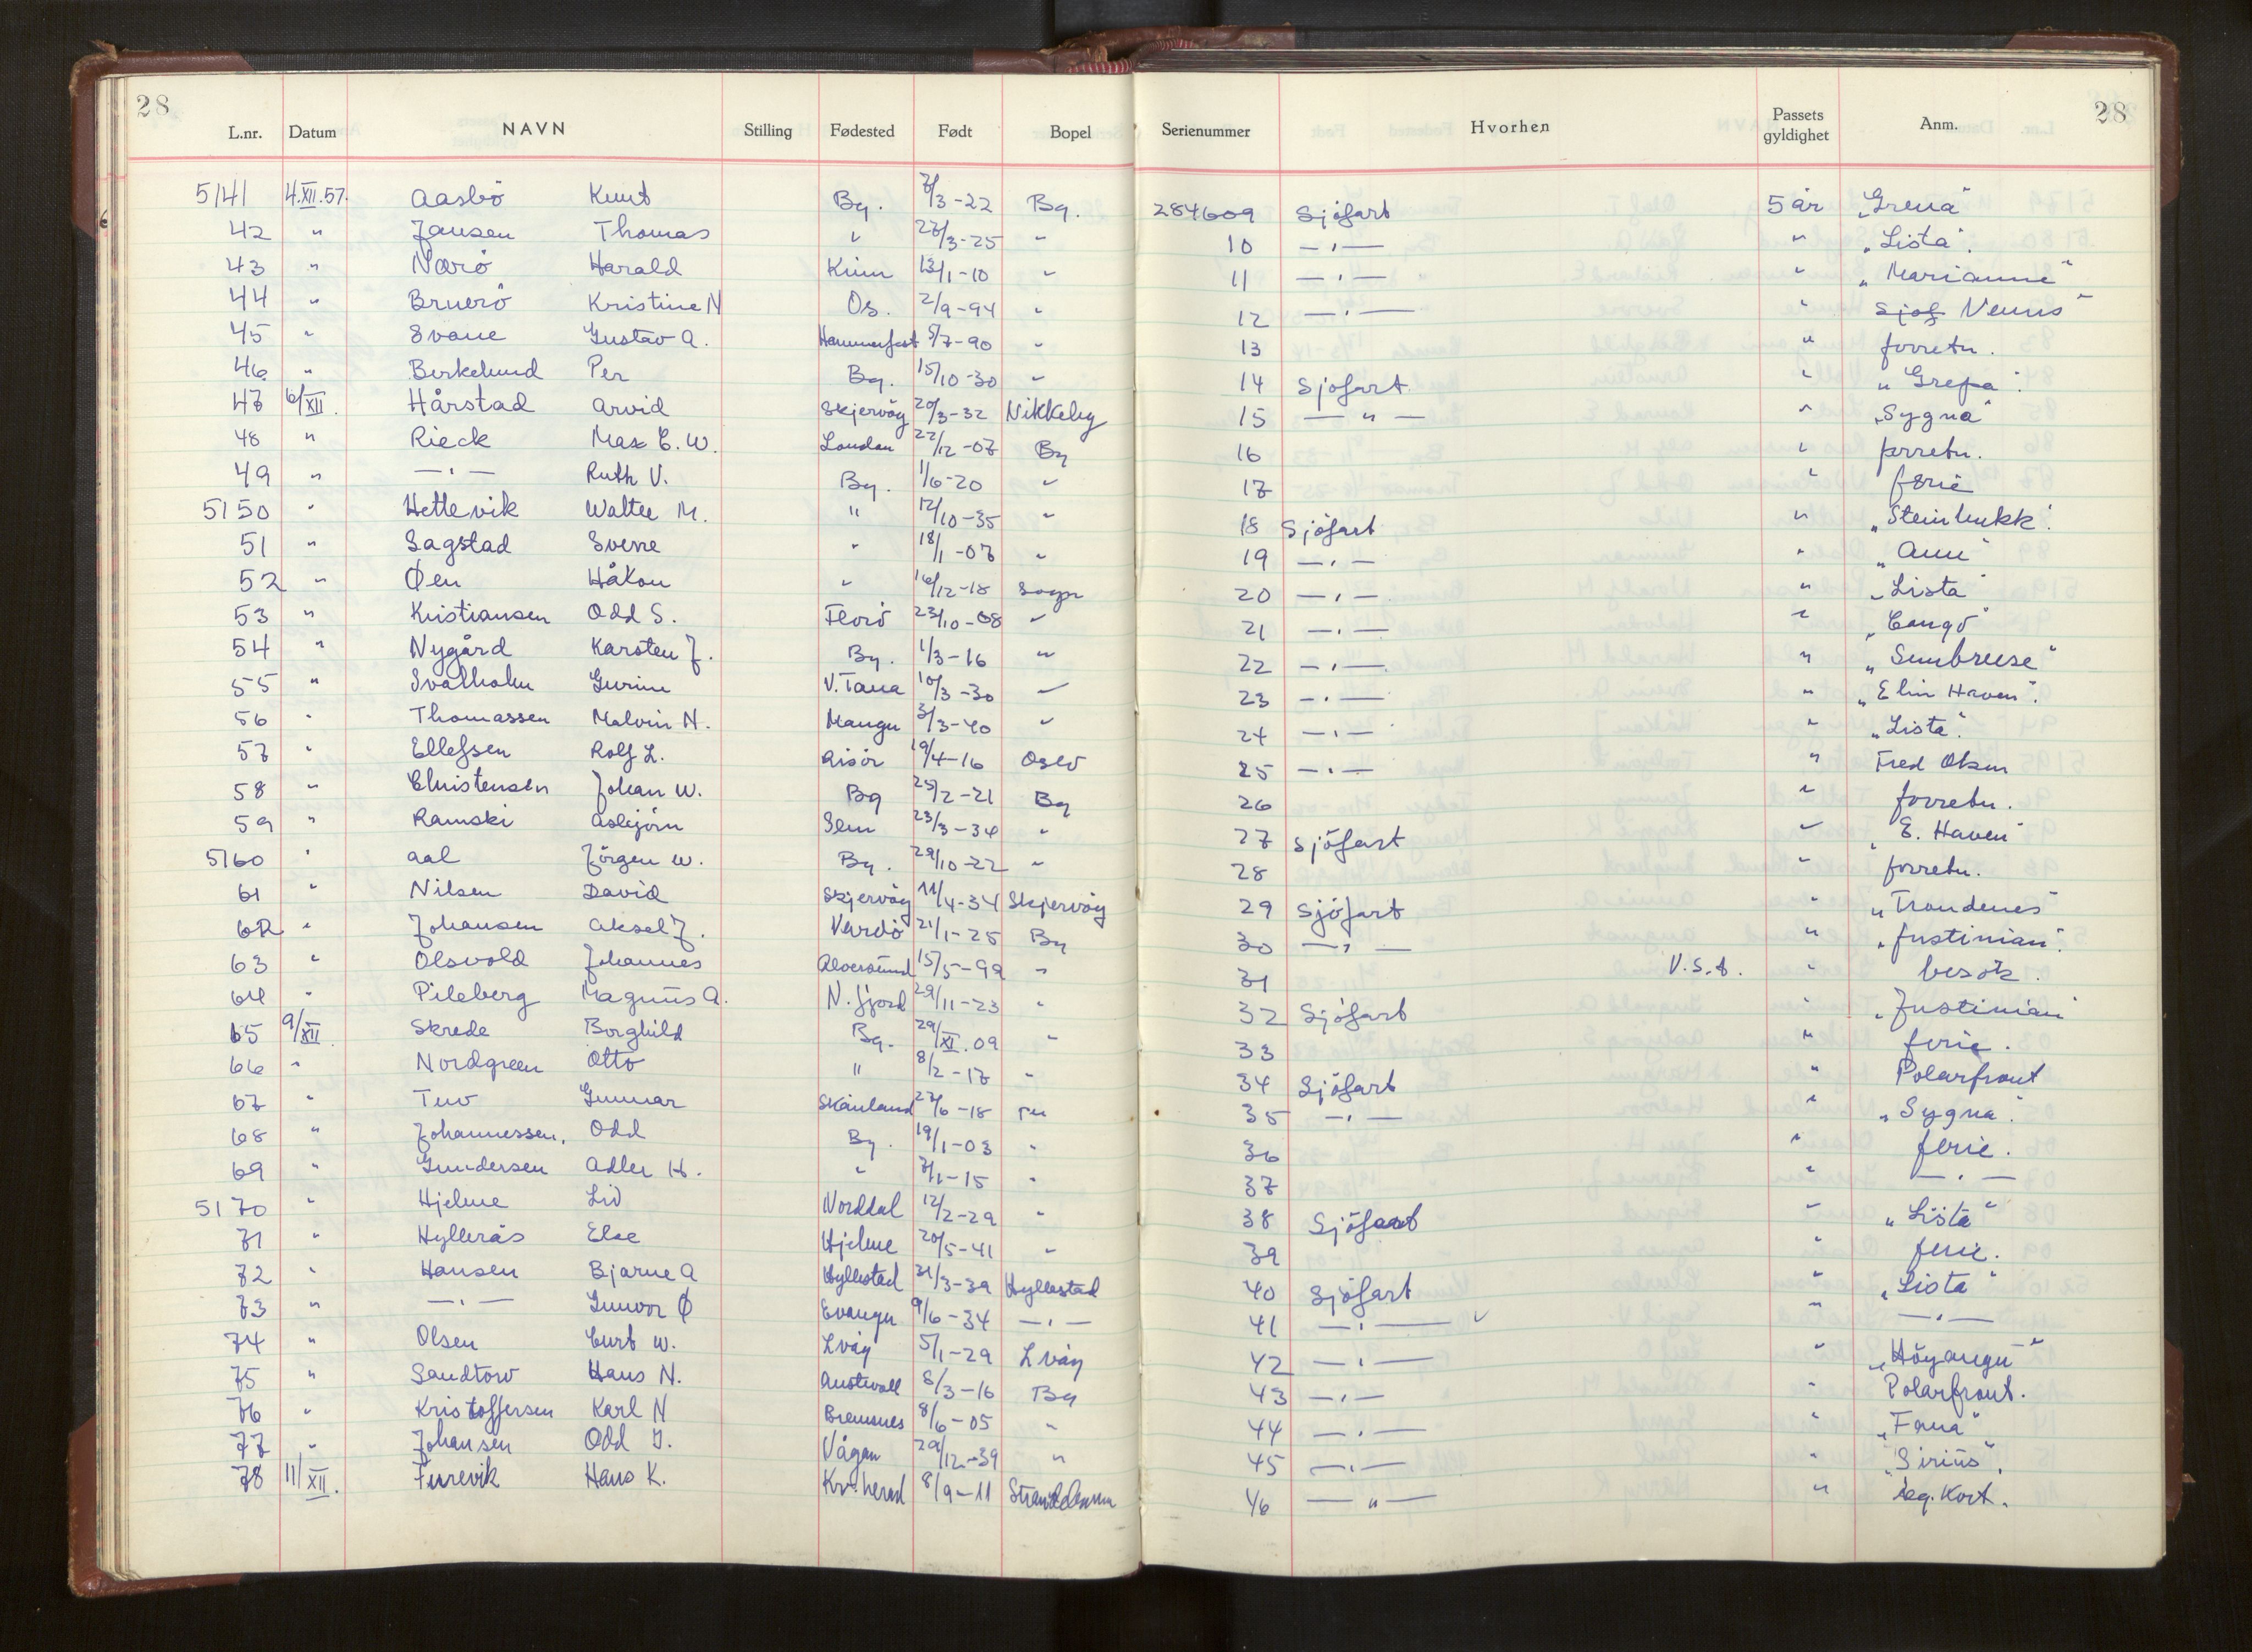 28 28
L.nr. Datum NAVN Stilling Fødested Født Bopel Serienummer Hvorhen Passets gyldighet Anm.
5141 4.XII.57. Aasbö Knut Bg. 7/3-22 Bg. 284609 Sjöfart 5 år „Grena"
42 " Jansen Thomas " 27/3-25 " 10 —"— " „Lista".
43 " Nærö Harald Kinn 13/1-10 " 11 —"— " „Marianne"
44 " Bruerö Kristine N Os. 2/9-94 " 12 —"— " Sjöf Venus"
45 " Svane Gustav A. Hammerfest 5/7-90 " 13 " forretn.
46 " Birkelund Per Bg. 15/10-30 " 14 Sjöfart " „Grepa".
47 6/XII. Hårstad Arvid Skjervöy 20/3-32 Nikkeby 15 —"— " „Sygna"
48 " Rieck Max E. W. London 22/12-07 Bg 16 " forretn.
49 " —"— Ruth V. Bg. 1/6-20 " 17 " ferie
5150 " Hettevik Walter M. " 12/10-35 " 18 Sjöfart " „Steinbukk".
51 " Sagstad Sverre " 18/1-07 " 19 —"— " „Ann"
52 " Øen Håkon " 16/12-18 Sogn 20 —"— " „Lista"
53 " Kristiansen Odd S. Florö 23/10-08 " 21 —"— " „Congo"
54 " Nygård Karsten J. Bg. 1/3-16 " 22 —"— " „Sunbreese"
55 " Svalholm Gurine V. Tana 10/3-30 " 23 —"— " „Elin Haven".
56 " Thomassen Malvin N. Manger 3/3-40 " 24 —"— " „Lista".
57 " Ellefsen Rolf L. Risör 19/4-16 Oslo 25 —"— " Fred Olsen
58 " Christensen Johan W. Bg 25/2-21 Bg 26 " forretn.
59 " Ramski Asbjörn Sem 23/3-34 " 27 Sjöfart " „E. Haven"
5160 " Aal Jörgen W. Bg. 29/10-22 " 28 " forretn.
61 " Nilsen David Skjervöy 11/4-34 Skjervöy 29 Sjöfart " „Trondenes"
62 " Johansen Aksel J. Vardö 21/1-25 Bg 30 —"— " „Justinian".
63 " Olsvold Johannes Alversund 15/5-99 " 31 V.S.A. " besök.
64 " Pileberg Magnus A. N.fjord 29/11-23 " 32 Sjöfart " „Justinian"
65 9/XII. Skrede Borghild Bg. 29/XI.09 " 33 " ferie.
66 " Nordgreen Otto " 8/2-17 " 34 Sjöfart " Polarfront
67 " Tuv Gunnar Skånland 27/6-18 " 35 —"— " „Sygna".
68 " Johannessen, Odd Bg. 19/1-03 " 36 " ferie.
69 " Gundersen Adler H. " 7/1-15 " 37 " —"—
5170 " Hjelme Liv Norddal 12/2-29 " 38 Sjöfart " „Lista"
71 " Hyllerås Else Hjelme 20/5-41 " 39 " ferie.
72 " Hansen Bjarne A Hyllestad 31/3-39 Hyllestad 40 Sjöfart " „Lista"
73 " —"— Gunvor Ø Evanger 9/6-34 —"— 41 —"— " —"—
74 " Olsen Curt W. Lvåg 5/1-29 Lvåg 42 —"— " „Höyanger"
75 " Sandtorv Hans N. Austevoll 8/3-16 Bg 43 —"— " Polarfront.
76 " Kristoffersen Karl N Bremsnes 8/6-05 " 44 —"— " „Fana"
77 " Johansen Odd J. Vågan 29/12-39 " 45 —"— " „Sirius".
78 11/XII. Furevik Hans K. Kv.herad 8/9-11 46 —"— " leg. Kort.